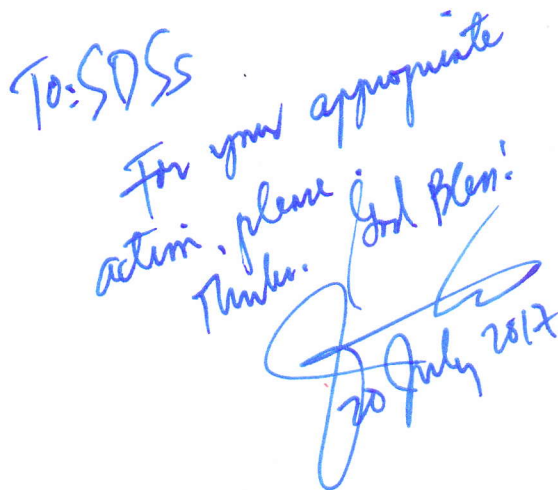 To: SDSs
For your appropriate
action, please.
Thanks. God Bless!
20 July 2017